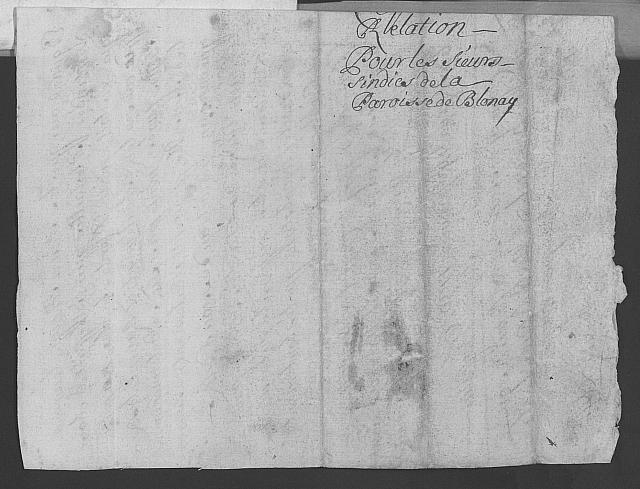 Relation —
Pour les Sieurs
Sindics de la
Paroisse de Blonay